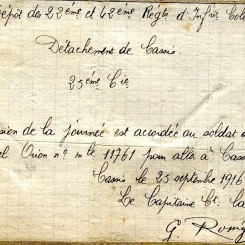 épôt des 22ème et 42ème Régts d'Infrie Colo
Détachement de Cassis.
25ème Cie
sion de la journée est accordée au soldat
el Orion no mle 11761 pour aller à Cass
Cassis le 25 septembre 1916
Le Capitaine Ct. la
G. Romy